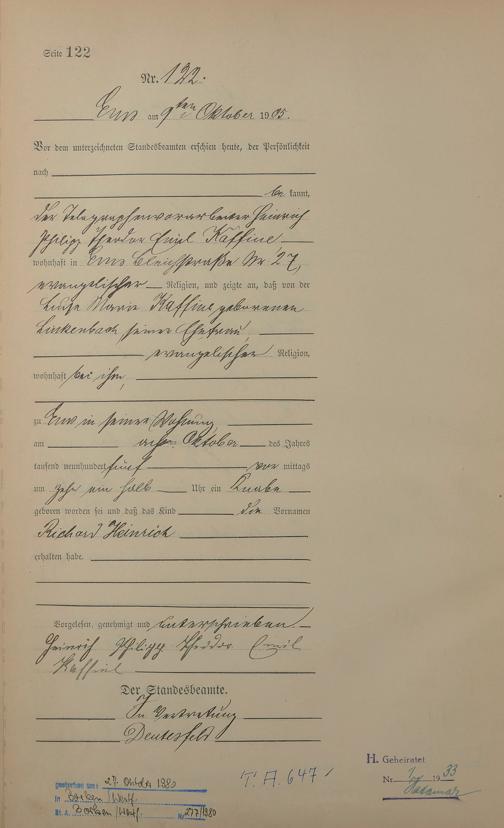 Seite 122
Nr. 122.
Ems am 9ten Oktober 1905.
Vor dem unterzeichneten Standesbeamten erschien heute, der Persönlichkeit
nach
be kannt,
der Telegraphenvorarbeiter Heinrich
Philipp Theodor Emil Kaffine
wohnhaft in Ems straße Nr 27,
evangelischer Religion, und zeigte an, daß von der
Luise Marie Kaffine geborenen
Linkenbach, seiner Ehefrau,
evangelischer Religion,
wohnhaft bei ihm,
zu Ems in seiner Wohnung,
am achten Oktober des Jahres
tausend neunhundert fünf vor mittags
um zehn ein halb Uhr ein Knabe
geboren worden sei und daß das Kind die Vornamen
Richard Heinrich
erhalten habe.
Vorgelesen, genehmigt und unterschrieben
Heinrich Philipp Theodor Emil
Der Standesbeamte.
In Vertretung
gestorben am: 27. Oktober 1980
in Borken / Westf.
St. A. Borken / Westf. Nr 277/1980
T. A. 647
H. Geheiratet
Nr. 1933